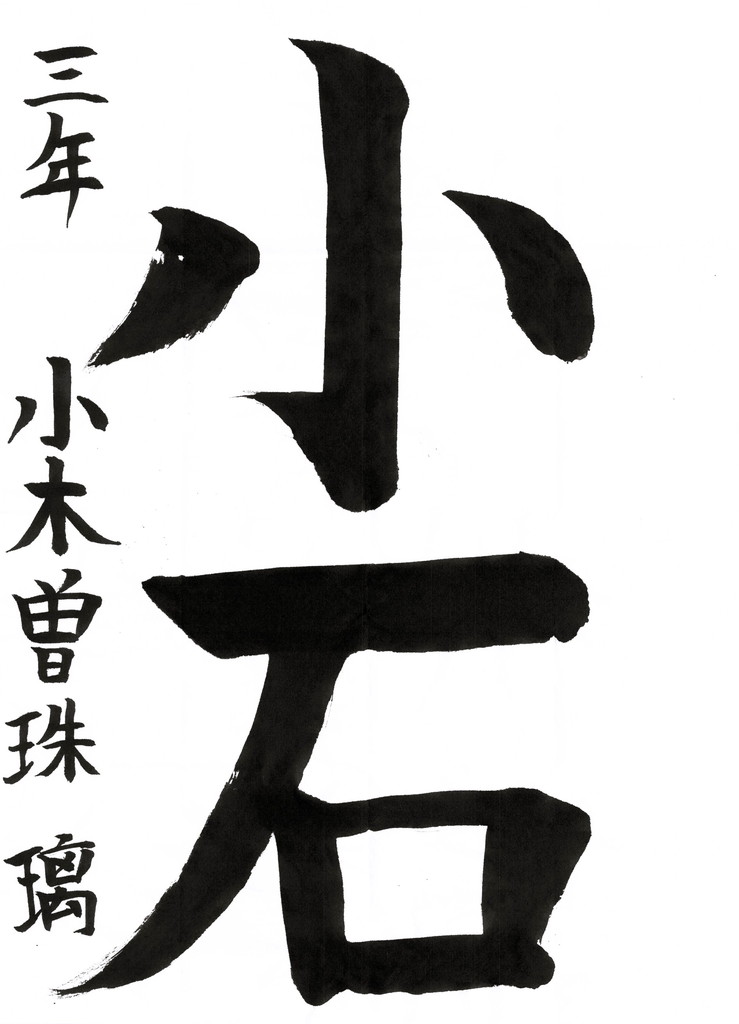 小石
三年 小木曽珠璃